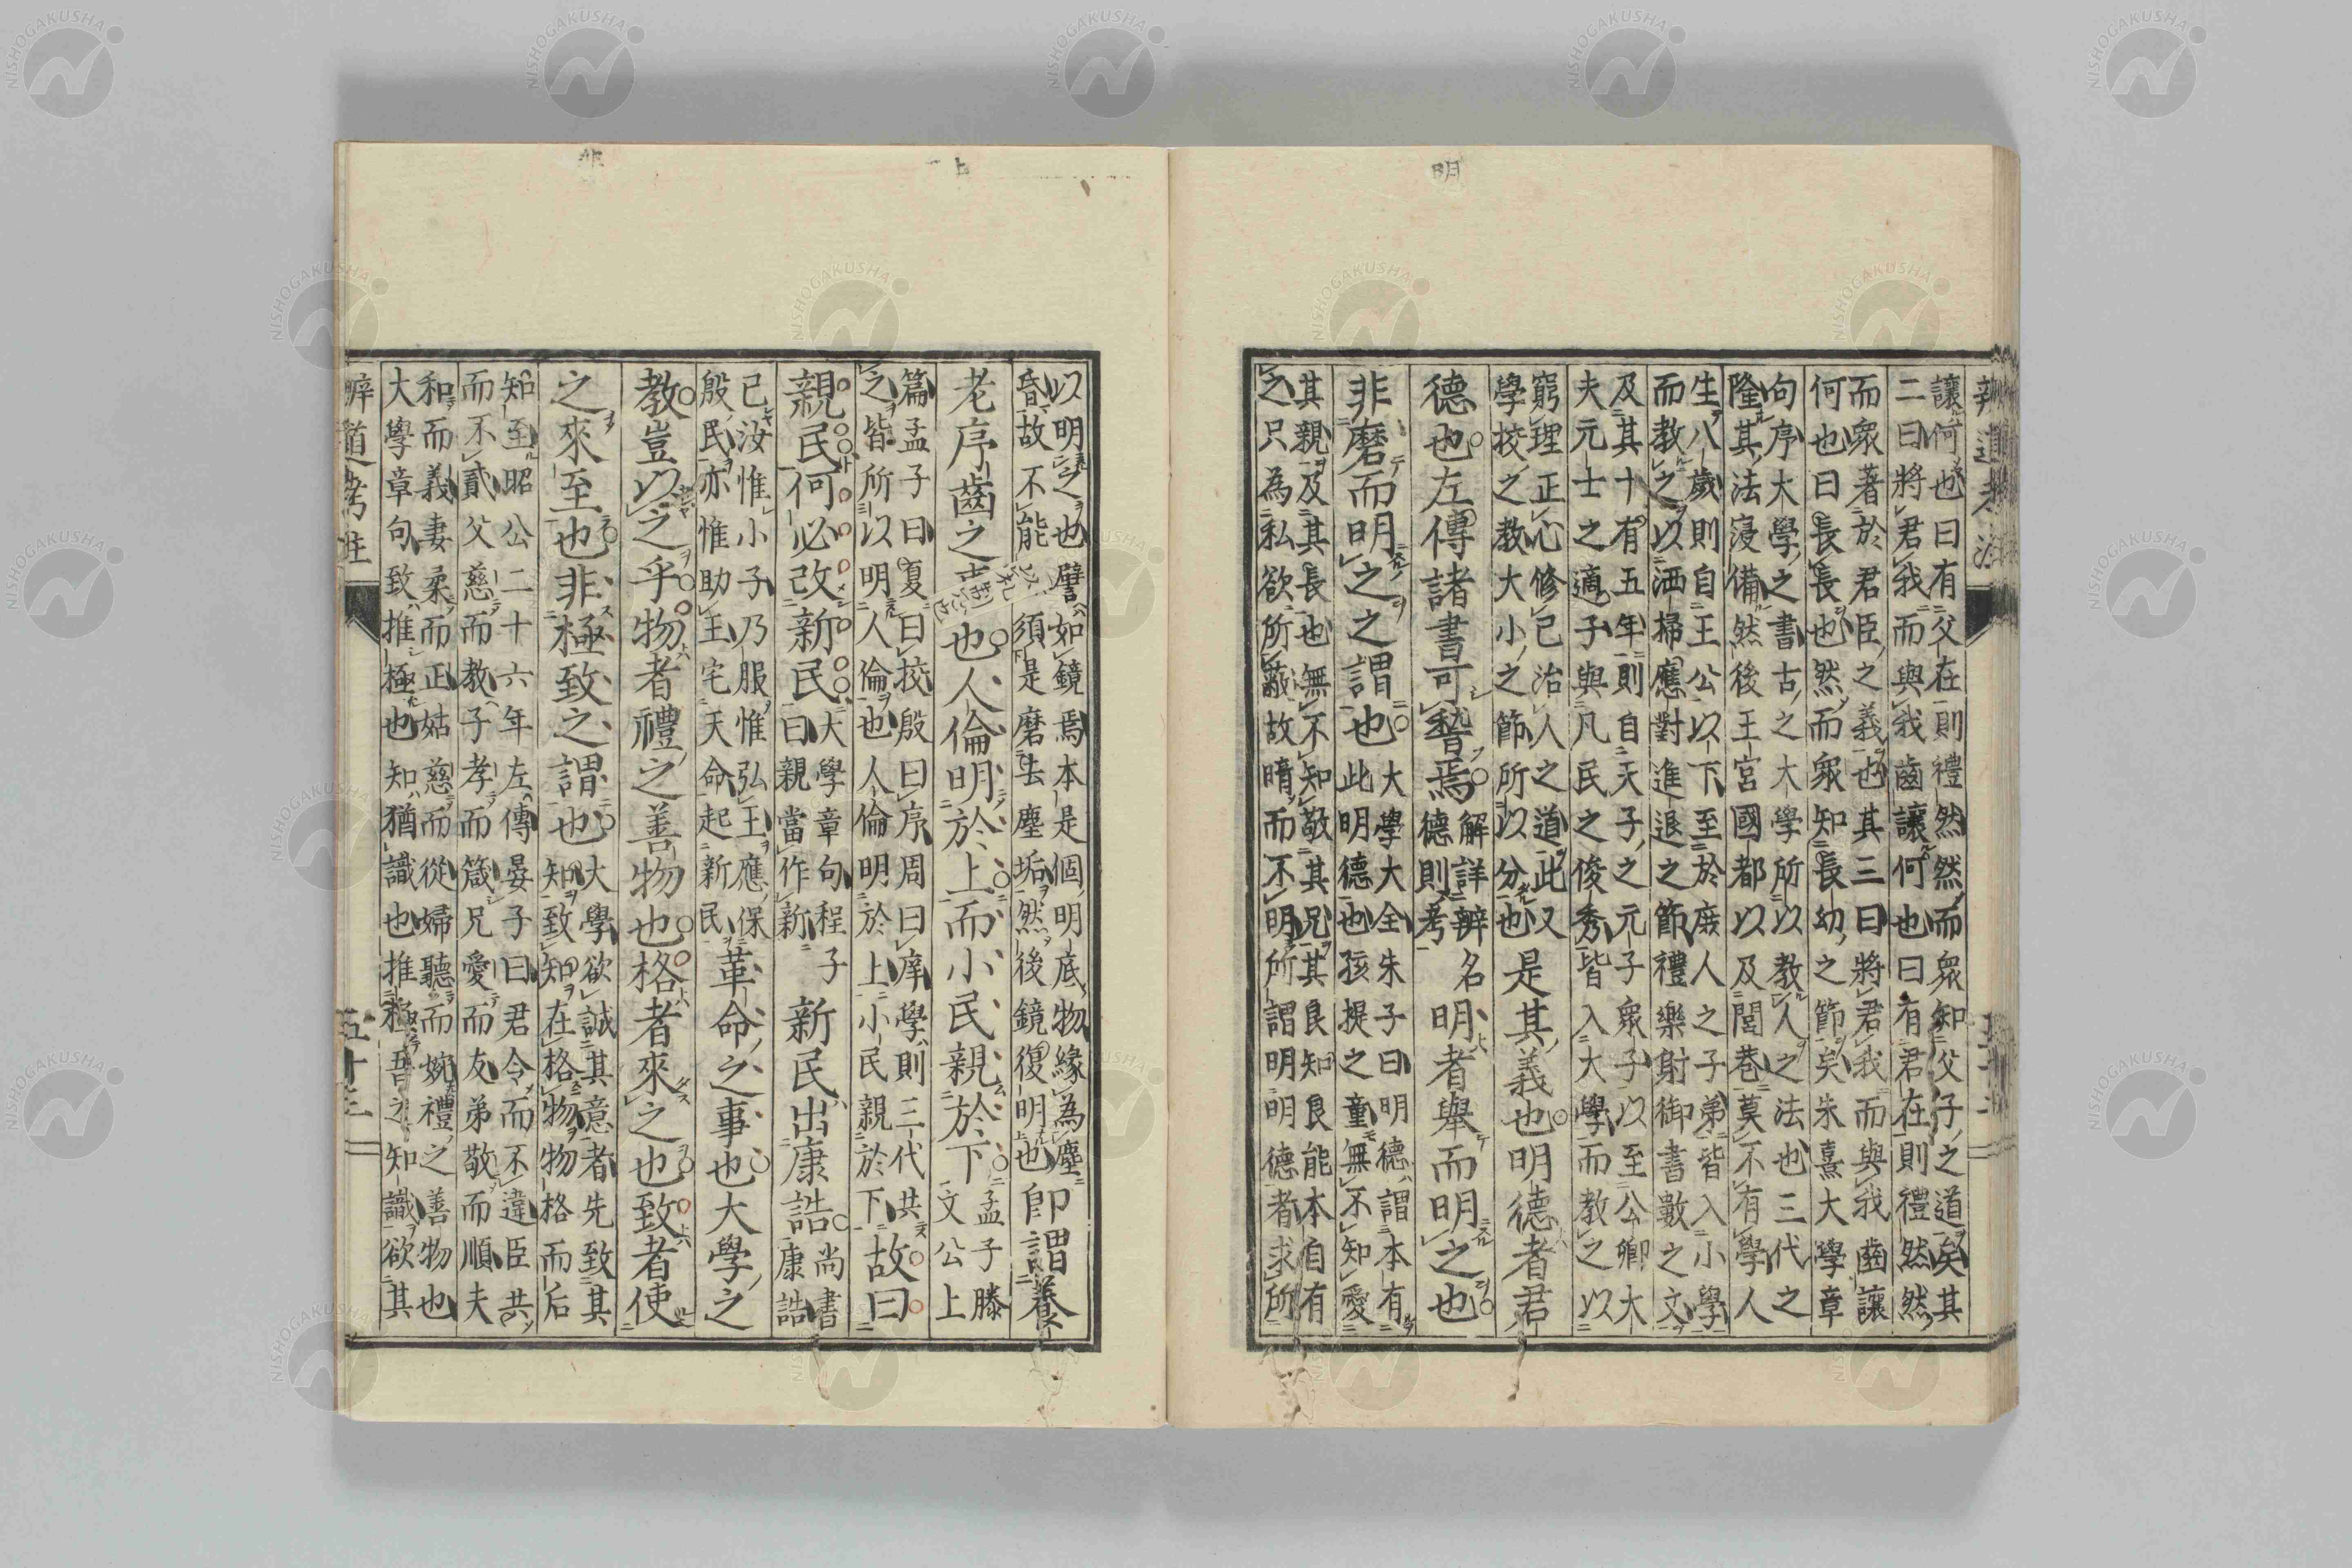 辨道考注
讓何也曰有父在則禮然然而衆知父子之道矣其
二曰將君我而與我齒讓何也曰有君在則禮然然
而衆著於君臣之義也其三曰將君我而與我齒讓
何也曰長長也然而衆知長幼之節矣朱熹大學章
句序大學之書古之大學所以教人之法也三代之
隆其法寖備然後王宮國都以及閭巷莫不有學人
生八歲則自王公以下至於庶人之子弟皆入小學
而教之以洒掃應對進退之節禮樂射御書數之文
及其十有五年則自天子之元子衆子以至公卿大
夫元士之適子與凡民之俊秀皆入大學而教之以
窮理正心修己治人之道此又
學挍之教大小之節所以分也
是其義也明德者君
德也左傳諸書可稽焉
解詳辨名
德則考
明者舉而明之也
非磨而明之之謂也
大學大全朱子曰明德謂本有
此明德也孩提之童無不知愛
其親及其長也無不知敬其兄其良知良能本自有
之只為私欲所蔽故暗而不明所謂明明德者求所
以明之也譬如鏡焉本是個明底物緣為塵
昏故不能 須是磨去塵垢然後鏡復明也
即謂養
老序齒之 也人倫明於上而小民親於下
孟子滕
文公上
篇孟子曰夏曰挍殷曰序周曰庠學則三代共
之皆所以明人倫也人倫明於上小民親於下
故曰
親民何必改新民
大學章句程子
曰親當作新
新民出康誥
尚書
康誥
已汝惟小子乃服惟弘王應保
殷民亦惟助王宅天命起新民
革命之事也大學之
教豈以之乎物者禮之善物也格者來之也致者使
之來至也非極致之謂也
大學欲誠其意者先致其
知致知在格物物格而后
知至昭公二十六年左傳晏子曰君令而不違臣共
而不貳父慈而教子孝而箴兄愛而友弟敬而順夫
和而義妻柔而正姑慈而從婦聽而婉禮之善物也
大學章句致推極也知猶識也推極吾之知識欲其
辨道考注
五十三
明
上
非
NISHOGAKUSHA